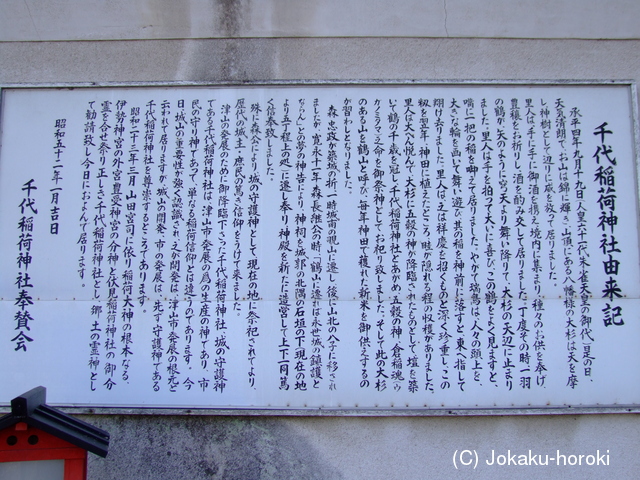 千代稲荷神社由来記
承平四年九月十九日(人皇六十一代朱雀天皇の御代)星の日、
天気清朗で、お山は錦に輝き、山頂にある八幡様の大杉は天を摩
し神樹として辺りに威を放って居りました。
里人は手に手に御酒を携え境内に集まり、種々のお供を奉げ、
豊穣をお祈りし酒を酌み交して居りました。丁度その時一羽
の鶴が、矢のように宮の天より舞い降りて、大杉の天辺に止まり
ました。里人は手を拍って大いに喜び、この鶴をよく見ますと、
嘴に一把の稲を啣えて居りました。やがて瑞鳥は、人々の頭上を、
大きな輪を画いて舞い遊び其の稲を神前に落すと東へ指して
翔けありました。里人は之は祥慶を招くものと深く珍重しこの
籾を翌年、神田に植えたところ畦が隠れる程の収穫がありました。
里人は大へん欣んで大杉に五穀の神が降臨されたものとして、壇を築
いて鶴の千歳を冠し千代稲荷神社とあがめ、五穀の神、倉稲魂の
カノミタマノ命を御祭神としてお祝り致しました。そして此の大杉
のある山を鶴山と呼び毎年神田で穫れた新米を御供えするの
が習わしとなりました。
森忠政が築城の折、一時城南の覗山に遷し後に山北の八子に移され
ましたが、寛永十一年森長継公の時「鶴山に還れば永世城の鎮護と
ならん」との夢の神告により神祠を城郭の北隅の石垣の下現在の地
より五丁程上の処へに遷し奉り神殿を新たに造営して上下一同篤
く信奉致しました。
殊に森公により、城の守護神として、現在の地に祭り祀されてより、
歴代の城主、庶民の篤き信仰をうけて来ました。
津山の発展のために御降臨下さった千代稲荷神社、城の守護神
である千代稲荷神社は、津山市発展の為の生産の神であり、市
民の守り神であって単なる稲荷信仰とは違うのであります。今
日、城山の重要性が強く認識され之が開発は、津山市発展の根元と
云われて居りますが、城山の開発、市の発展は、先ず守護神である
千代稲荷神社を尊崇するところであります。
昭和二十三年三月山田宮司に依り稲荷大神の根本なる、
伊勢神宮の外宮豊受神宮の分神と伏見稲荷神社の御分
霊を合せ祭り正しき千代稲荷神社とし、郷土の霊神とし
て勧請致し今日におよんで居ります。
昭和五十二年一月吉日
千代稲荷神社奉賛会
(C) Jokaku-horoki